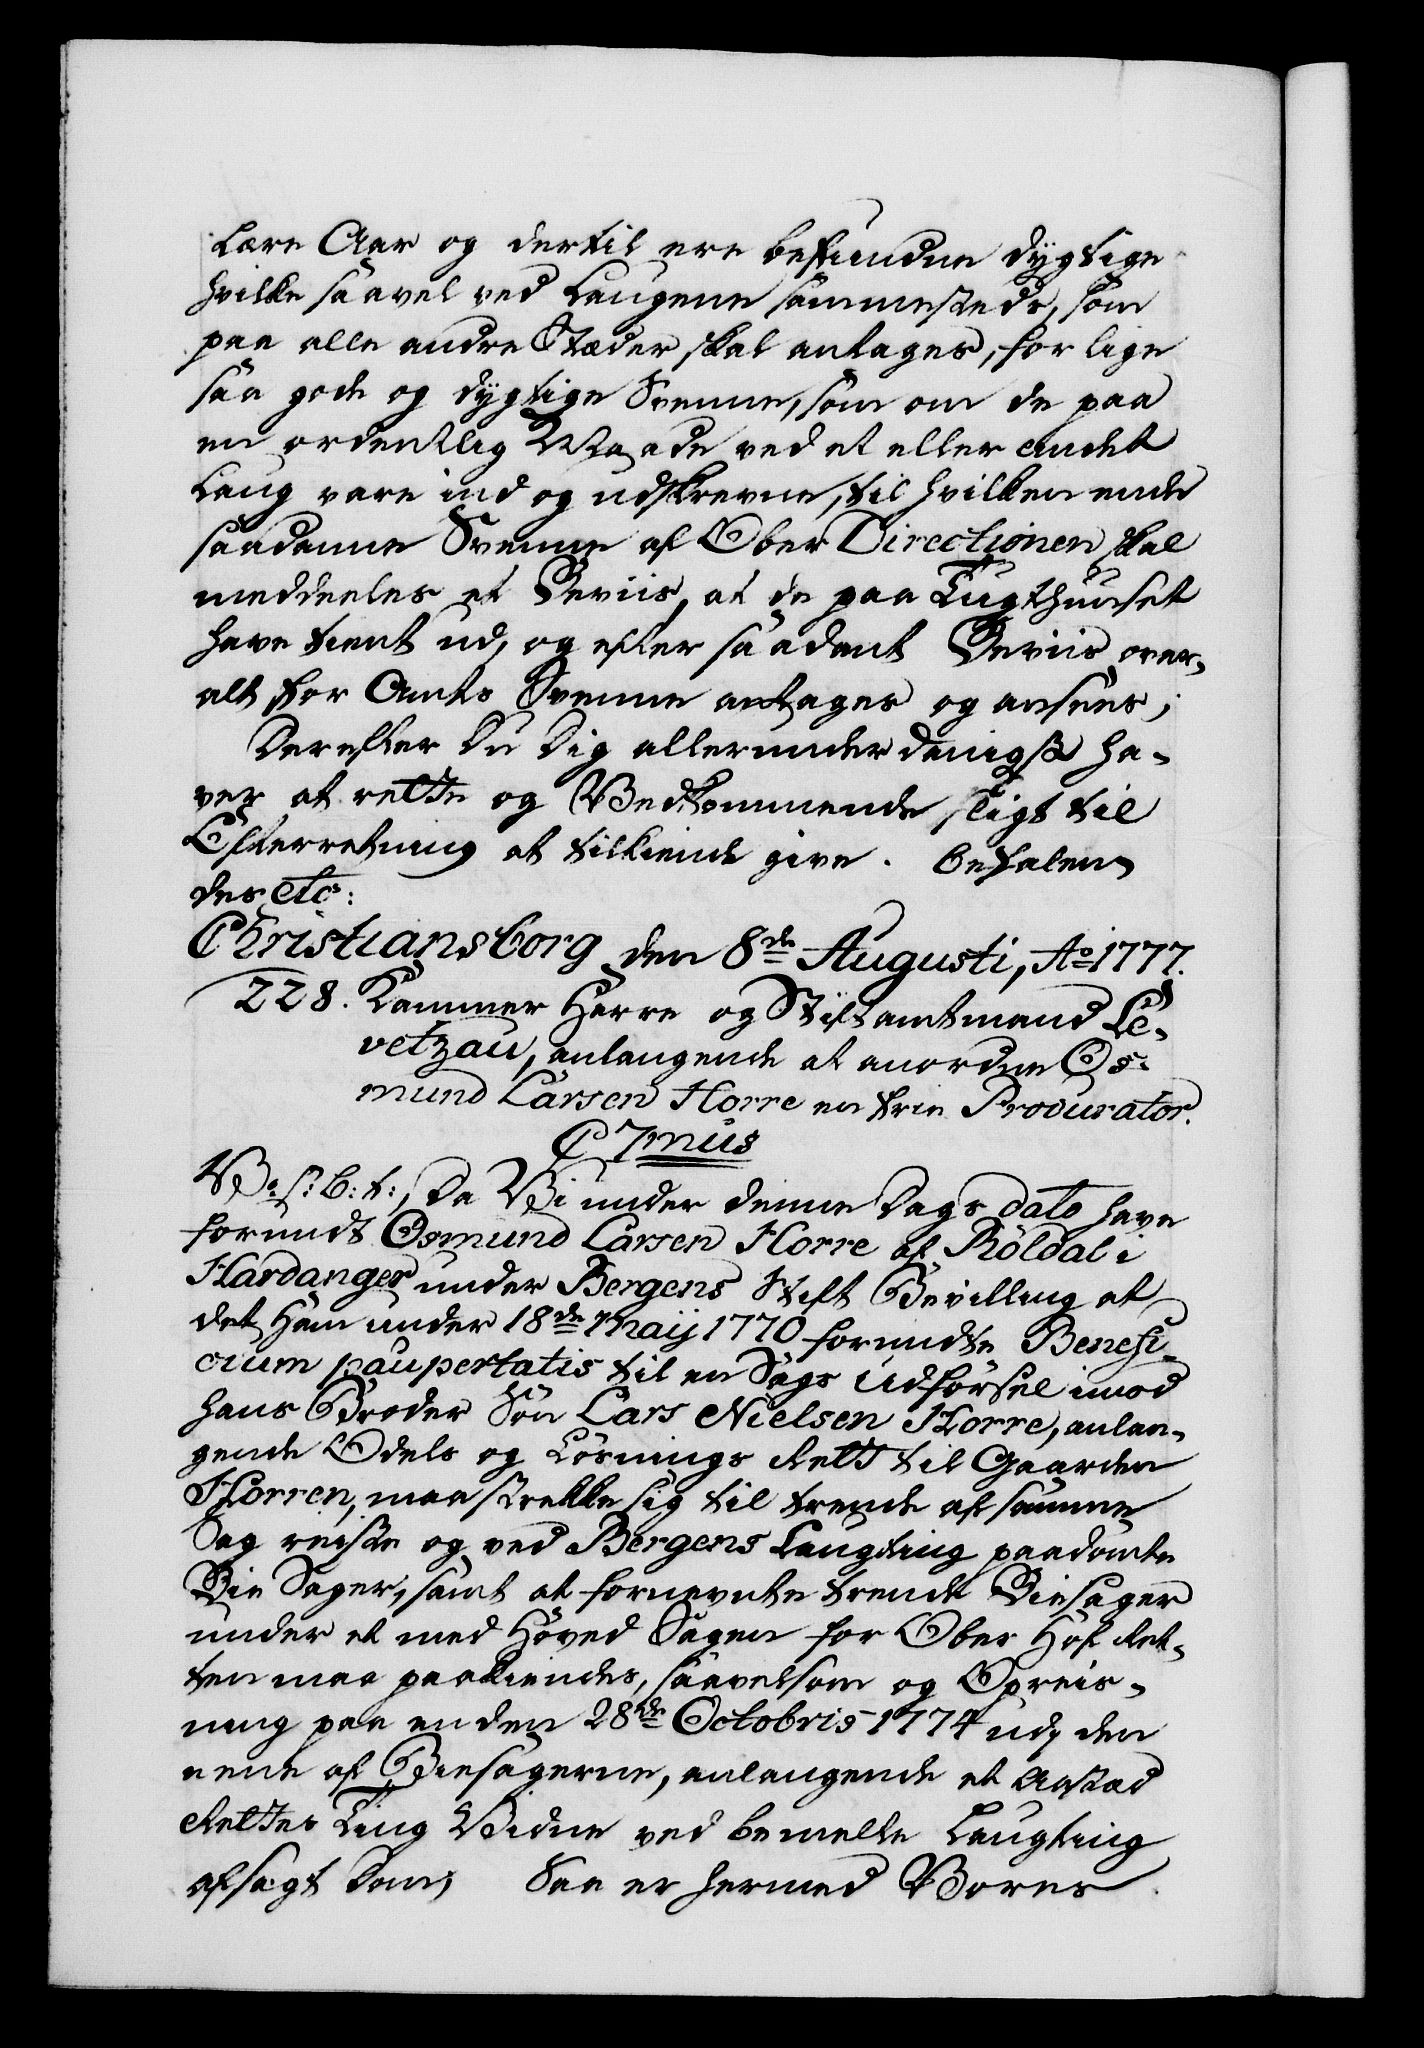 Lære Aar og dertil ere befundne dygtige
hvilke saavel ved Laugene sammesteds, som
paa alle andre Stæder skal antages, for lige
saa gode og dygtige Svenne, som om de paa
en ordentlig Maade ved et eller andet
Laug vare ind og udskrevne, til hvilken ende
saadanne Svenne af Ober Directionen skal
meddeeles et Beviis, at de paa Tugthuuset
have tient ud, og efter saadant Beviis over-
alt for Amts Svenne antages og ansees;
Derefter Du Dig allerunderdanigst ha-
ver at rette og Vedkommende sligt til
Efterretning at tilkiende give. Befalen-
des etc:
Christiansborg den 8de Augusti, Ao 1777.
228. Kammer Herre og Stiftamtmand Le-
vetzau, anlangende at anordne Os-
mund Larsen Horre en frie Procurator.
C 7mus
V. s: G: t:, Da Vi under denne Dags dato have
forundt Osmund Larsen Horre af Röldal i
Hardanger under Bergens Stift Bevilling at
det ham under 18de Maij 1770 forundte Benefi-
cium paupertatis til en Sags Udførsel imod
hans Broder Søn Lars Nielsen Horre, anlan-
gende Odels og Løsnings Rett til Gaarden
Horren, maa strekke sig til trende af samme
Sag reiste og ved Bergens Laugting paadømte
Bie Sager, samt at fornevnte trende Biesager
under et med Hoved Sagen for Ober Hof Ret-
ten maa paakiendes, saavelsom og Opreis-
ning paa en den 28de Octobris 1774 udj den
eene af Biesagerne, anlangende et Aastæd
Rettes Ting Vidne ved bemelte Laugting
afsagt Dom; Saa er hermed Vores